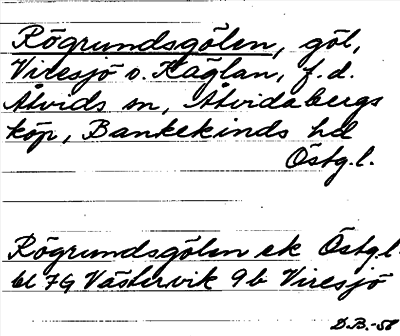 Rögrundsgölen, göl,
Viresjö o. Kaglan, f.d.
Åtvids sn, Åtvidabergs
köp, Bankekinds hd
Östg.l.
Rögrundsgölen ek Östg.l.
bl 7G Västervik 9b Viresjö
D.B.-58